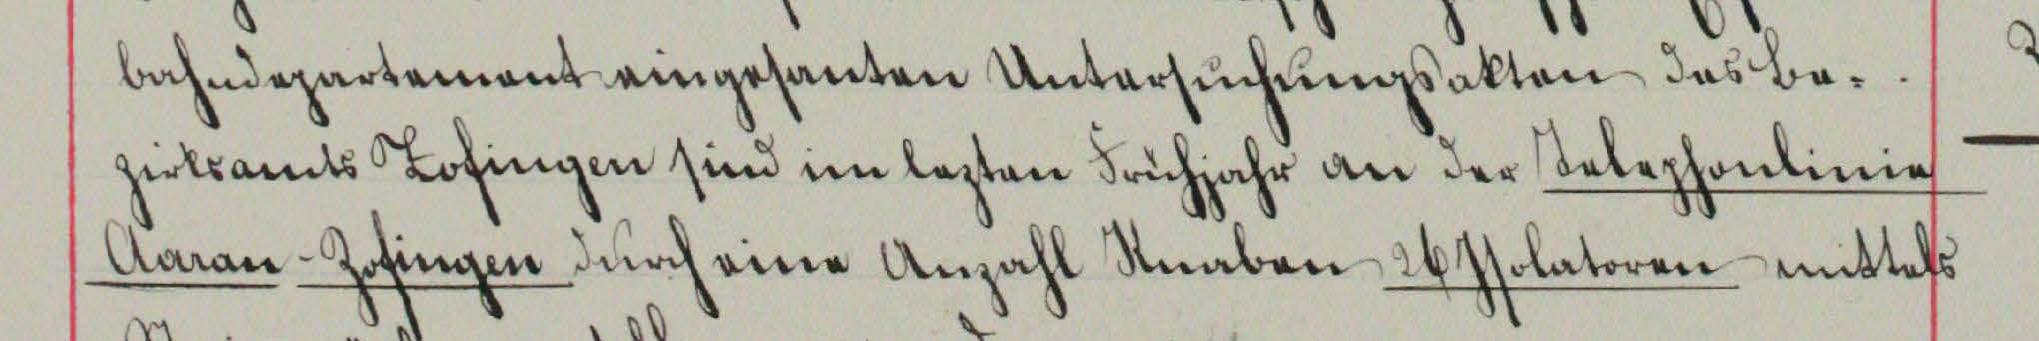 bahndepartement eingesanten Untersuchungsakten des Be-
zirksamts Zofingen sind im lezten Frühjahr an der Telephonlinie
Aarau-Zofingen durch eine Anzahl Knaben 26 Isolatoren mittels